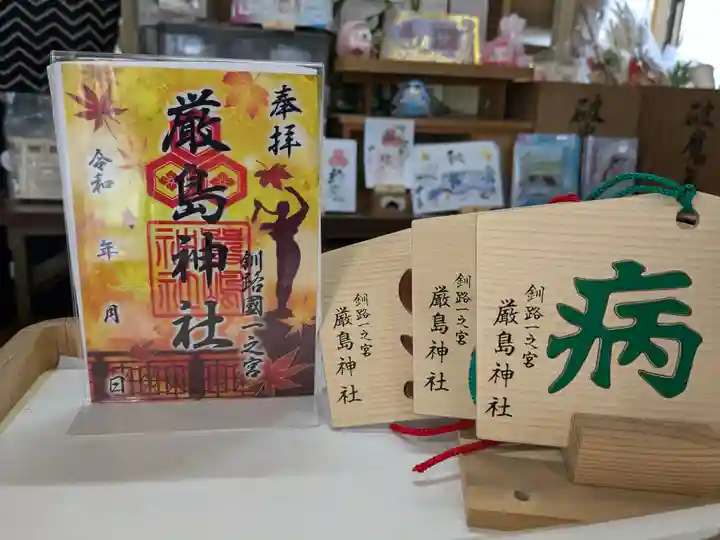 奉拝
厳島神社
釧路國一之宮
令和 年 月 日
釧路一之宮
厳島神社
釧路一之宮
厳島神社
釧路一之宮
厳島神社
病